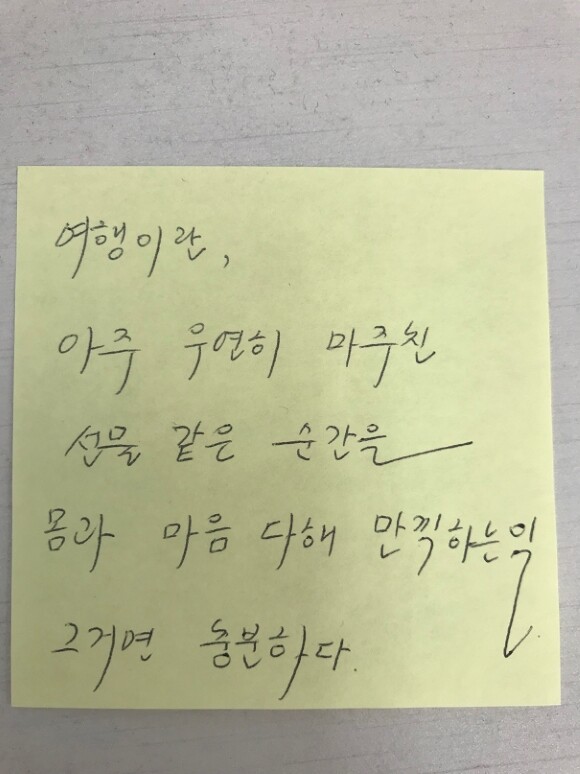 여행이란,
아주 우연히 마주친
선물 같은 순간을
몸과 마음 다해 만끽하는 일
그거면 충분하다.